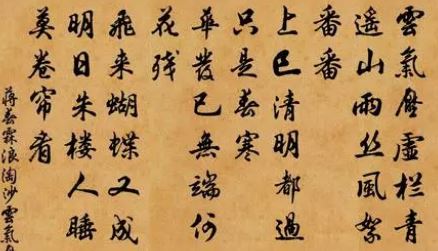 雲氣压虚栏青
遥山雨丝風絮
番番
上巳清明都過
只是春寒
華發已無端何
花残
飛来蝴蝶又成
明日朱楼人睡
莫卷帘看
蒋春霖浪淘沙雲氣